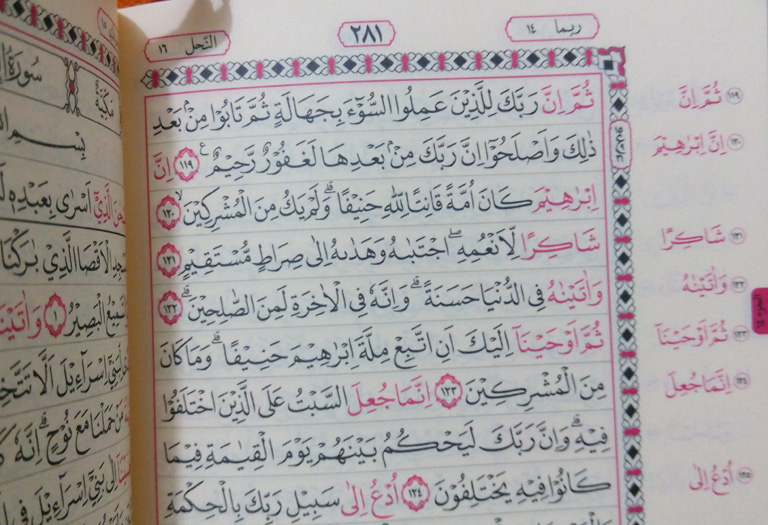 ربما ١٤
٢٨١
النّحل ١٦
ثُمَّ اِنَّ رَبَّكَ لِلَّذِيْنَ عَمِلُوا السُّوْٓءَ بِجَهَالَةٍ ثُمَّ تَابُوْا مِنْۢ بَعْدِ
ذٰلِكَ وَاَصْلَحُوْٓا اِنَّ رَبَّكَ مِنْۢ بَعْدِهَا لَغَفُوْرٌ رَّحِيْمٌ ࣖ ١١٩ اِنَّ
اِبْرٰهِيْمَ كَانَ اُمَّةً قَانِتًا لِّلّٰهِ حَنِيْفًاۗ وَلَمْ يَكُ مِنَ الْمُشْرِكِيْنَۙ ١٢٠
شَاكِرًا لِّاَنْعُمِهٖۗ اِجْتَبٰىهُ وَهَدٰىهُ اِلٰى صِرَاطٍ مُّسْتَقِيْمٍ ١٢١
وَاٰتَيْنٰهُ فِى الدُّنْيَا حَسَنَةً ۗوَاِنَّهٗ فِى الْاٰخِرَةِ لَمِنَ الصّٰلِحِيْنَۗ ١٢٢
ثُمَّ اَوْحَيْنَآ اِلَيْكَ اَنِ اتَّبِعْ مِلَّةَ اِبْرٰهِيْمَ حَنِيْفًا ۗوَمَا كَانَ
مِنَ الْمُشْرِكِيْنَ ١٢٣ اِنَّمَا جُعِلَ السَّبْتُ عَلَى الَّذِيْنَ اخْتَلَفُوْا
فِيْهِۗ وَاِنَّ رَبَّكَ لَيَحْكُمُ بَيْنَهُمْ يَوْمَ الْقِيٰمَةِ فِيْمَا
كَانُوْا فِيْهِ يَخْتَلِفُوْنَ ١٢٤ اُدْعُ اِلٰى سَبِيْلِ رَبِّكَ بِالْحِكْمَةِ
١١٩ ثُمَّ اِنَّ
١٢٠ اِنَّ اِبْرٰهِيْمَ
١٢١ شَاكِرًا
١٢٢ وَاٰتَيْنٰهُ
١٢٣ ثُمَّ اَوْحَيْنَآ
١٢٤ اِنَّمَا جُعِلَ
١٢٥ اُدْعُ اِلٰى
الجزء ١٤
سُورَةُ
مَكِّيَّة
بِسْمِ
الَّذِيْٓ اَسْرٰى بِعَبْدِهٖ
الْاَقْصَا الَّذِيْ بٰرَكْنَا
الْبَصِيْرُ ١ وَاٰتَيْنَا
لِّبَنِيْٓ اِسْرَاۤءِيْلَ اَلَّا
مَنْ حَمَلْنَا مَعَ نُوْحٍۗ اِنَّهٗ
اِلٰى بَنِيْٓ اِسْرَاۤءِيْلَ فِى